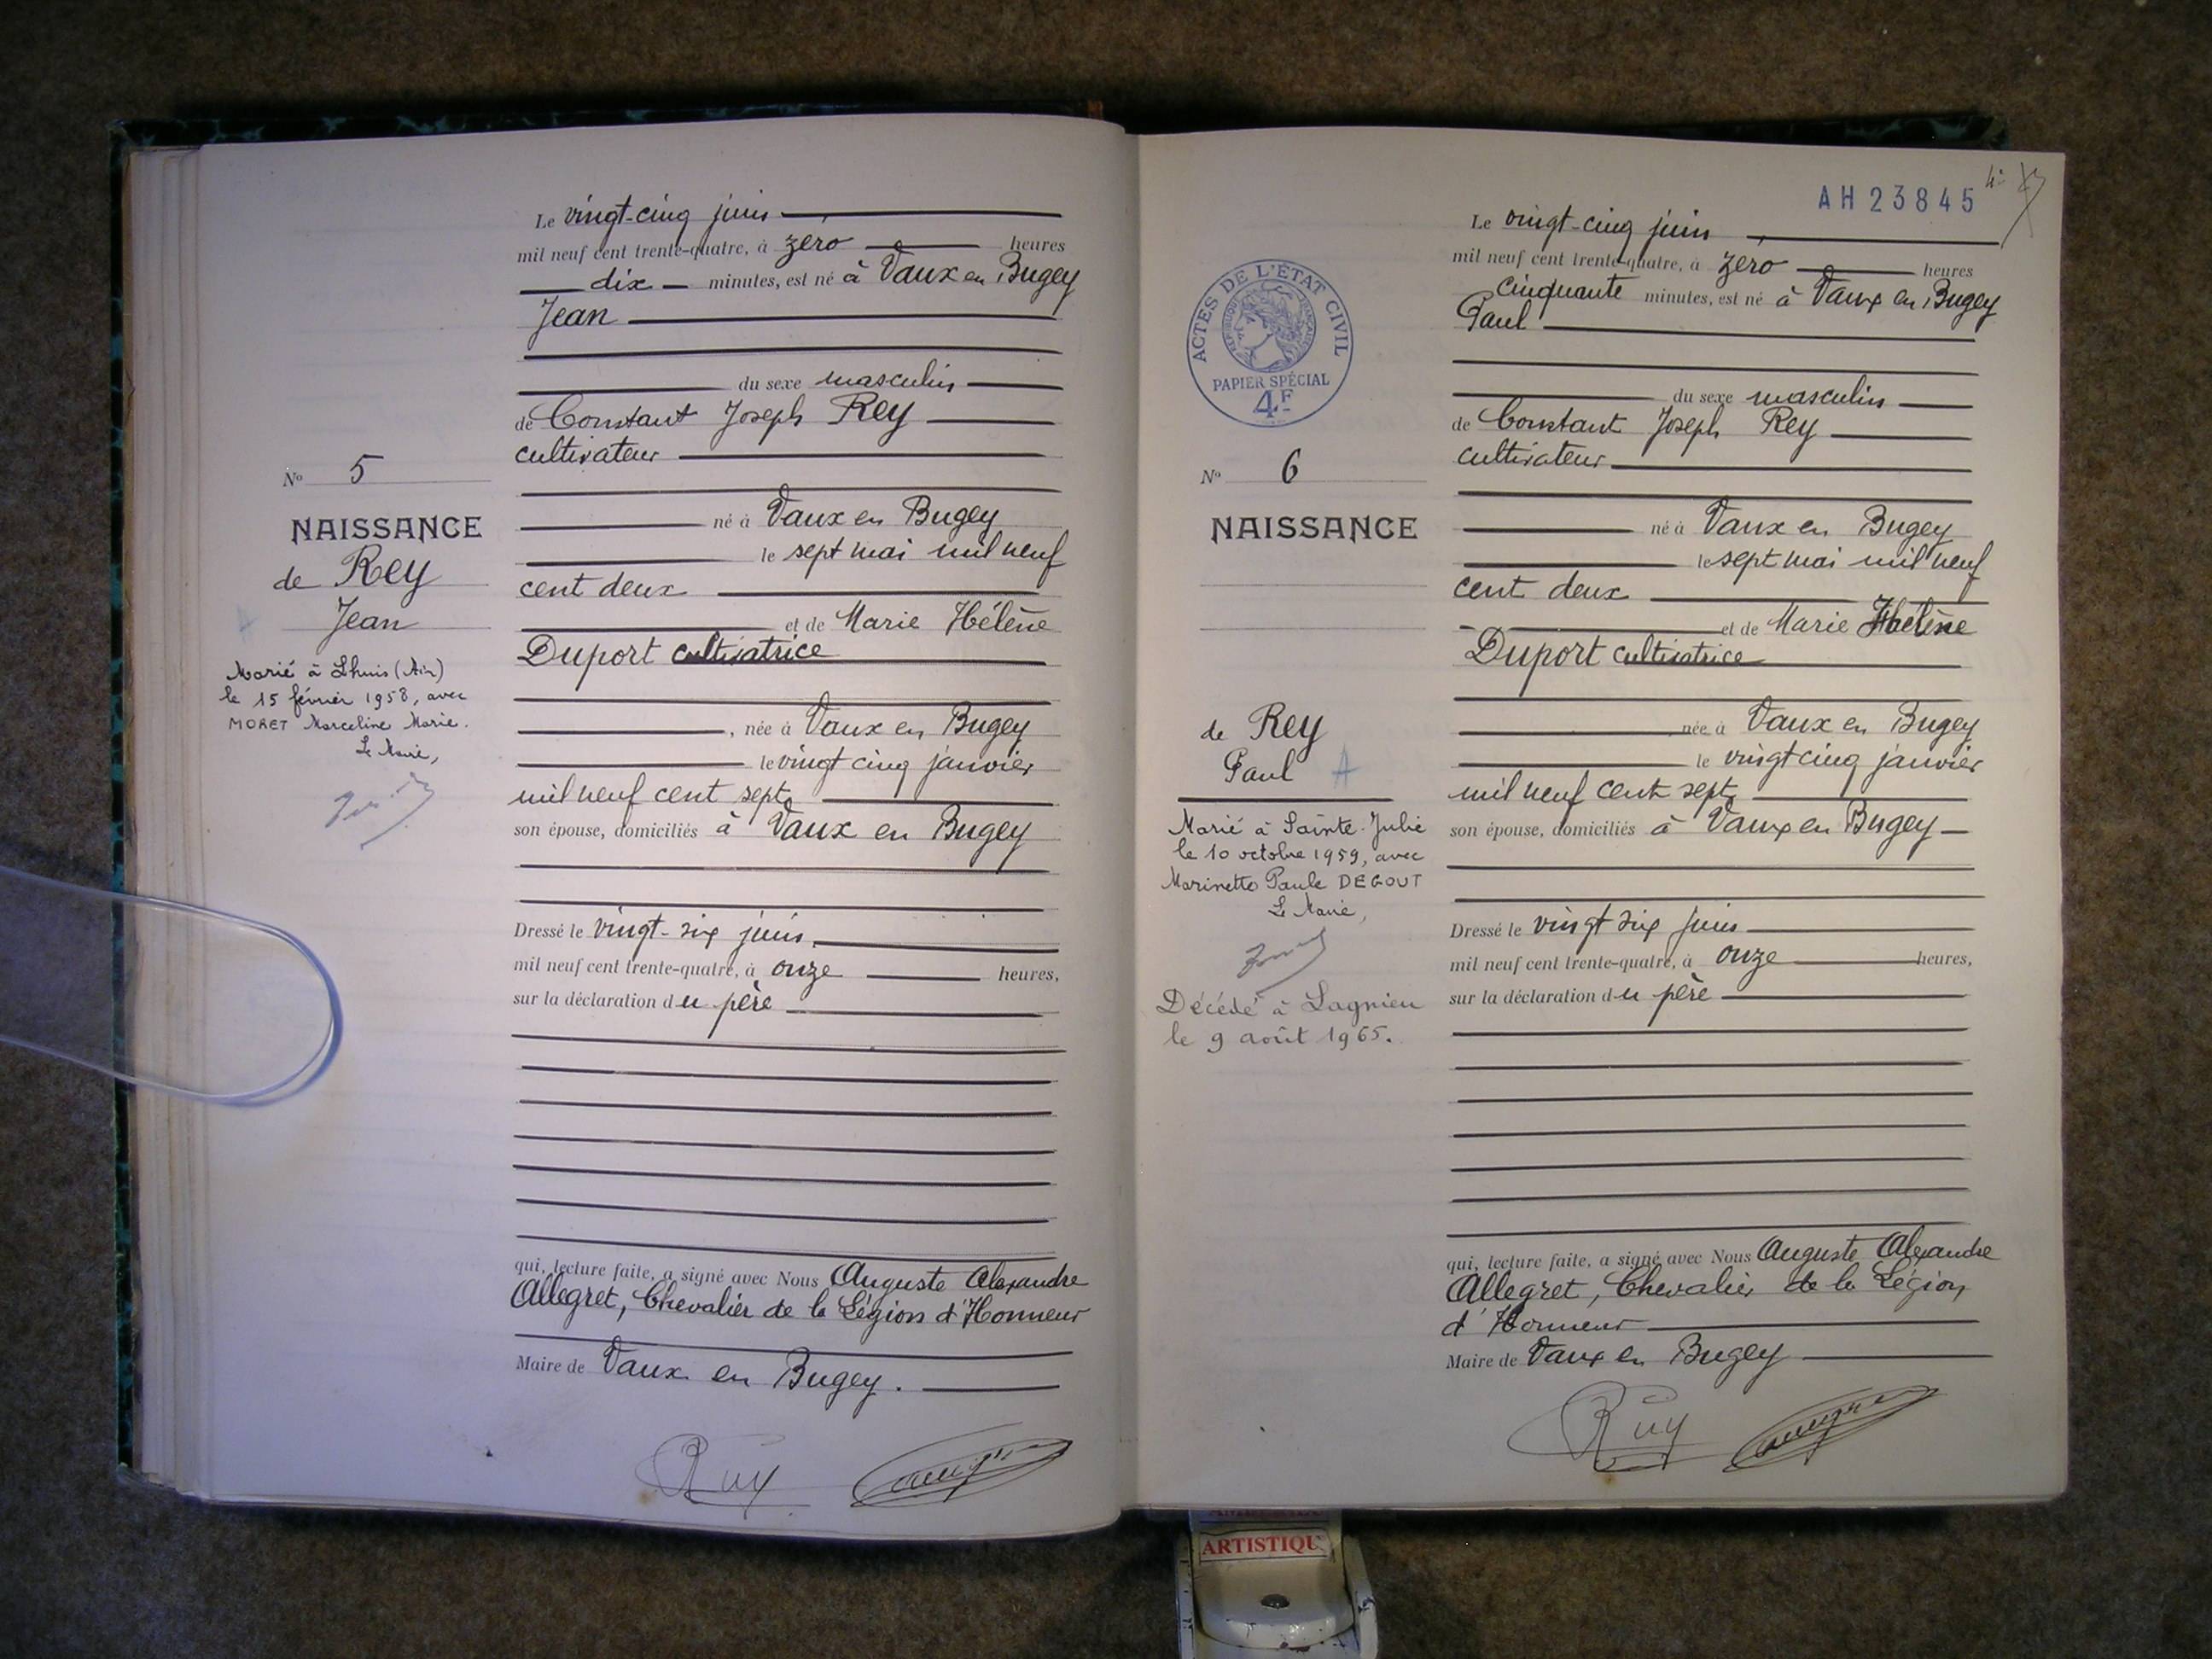 Le vingt-cinq juin
mil neuf cent trente-quatre, à zéro heures
dix minutes, est né à Vaux en Bugey
Jean
du sexe masculin
de Constant Joseph Rey
cultivateur
né à Vaux en Bugey
le sept mai mil neuf
cent deux
et de Marie Hélène
Duport cultivatrice
, née à Vaux en Bugey
le vingt cinq janvier
mil neuf cent sept
son épouse, domiciliés à Vaux en Bugey
Dressé le vingt-six juin
mil neuf cent trente-quatre, à onze heures,
sur la déclaration du père
qui, lecture faite, a signé avec Nous Auguste Alexandre
Allegret, Chevalier de la Légion d'Honneur
Maire de Vaux en Bugey.
Rey
No 5
NAISSANCE
de Rey
Jean
Marié à Lhuis (Ain)
le 15 février 1958, avec
MORET Marceline Marie.
Le Maire,
AH 23845
Le vingt-cinq juin
mil neuf cent trente-quatre, à zéro heures
cinquante minutes, est né à Vaux en Bugey
Paul
du sexe masculin
de Constant Joseph Rey
cultivateur
né à Vaux en Bugey
le sept mai mil neuf
cent deux
et de Marie Hélène
Duport cultivatrice
née à Vaux en Bugey
le vingt cinq janvier
mil neuf cent sept
son épouse, domiciliés à Vaux en Bugey
Dressé le vingt six juin
mil neuf cent trente-quatre, à onze heures,
sur la déclaration du père
qui, lecture faite, a signé avec Nous Auguste Alexandre
Allegret, Chevalier de la Légion
d'Honneur
Maire de Vaux en Bugey
Rey
ACTES DE L'ÉTAT CIVIL
RÉPUBLIQUE FRANÇAISE
PAPIER SPÉCIAL
4F
No 6
NAISSANCE
de Rey
Paul A
Marié à Sainte-Julie
le 10 octobre 1959, avec
Marinette Paule DEGOUT
Le Maire,
Décédé à Lagnieu
le 9 août 1965.
ARTISTIQU